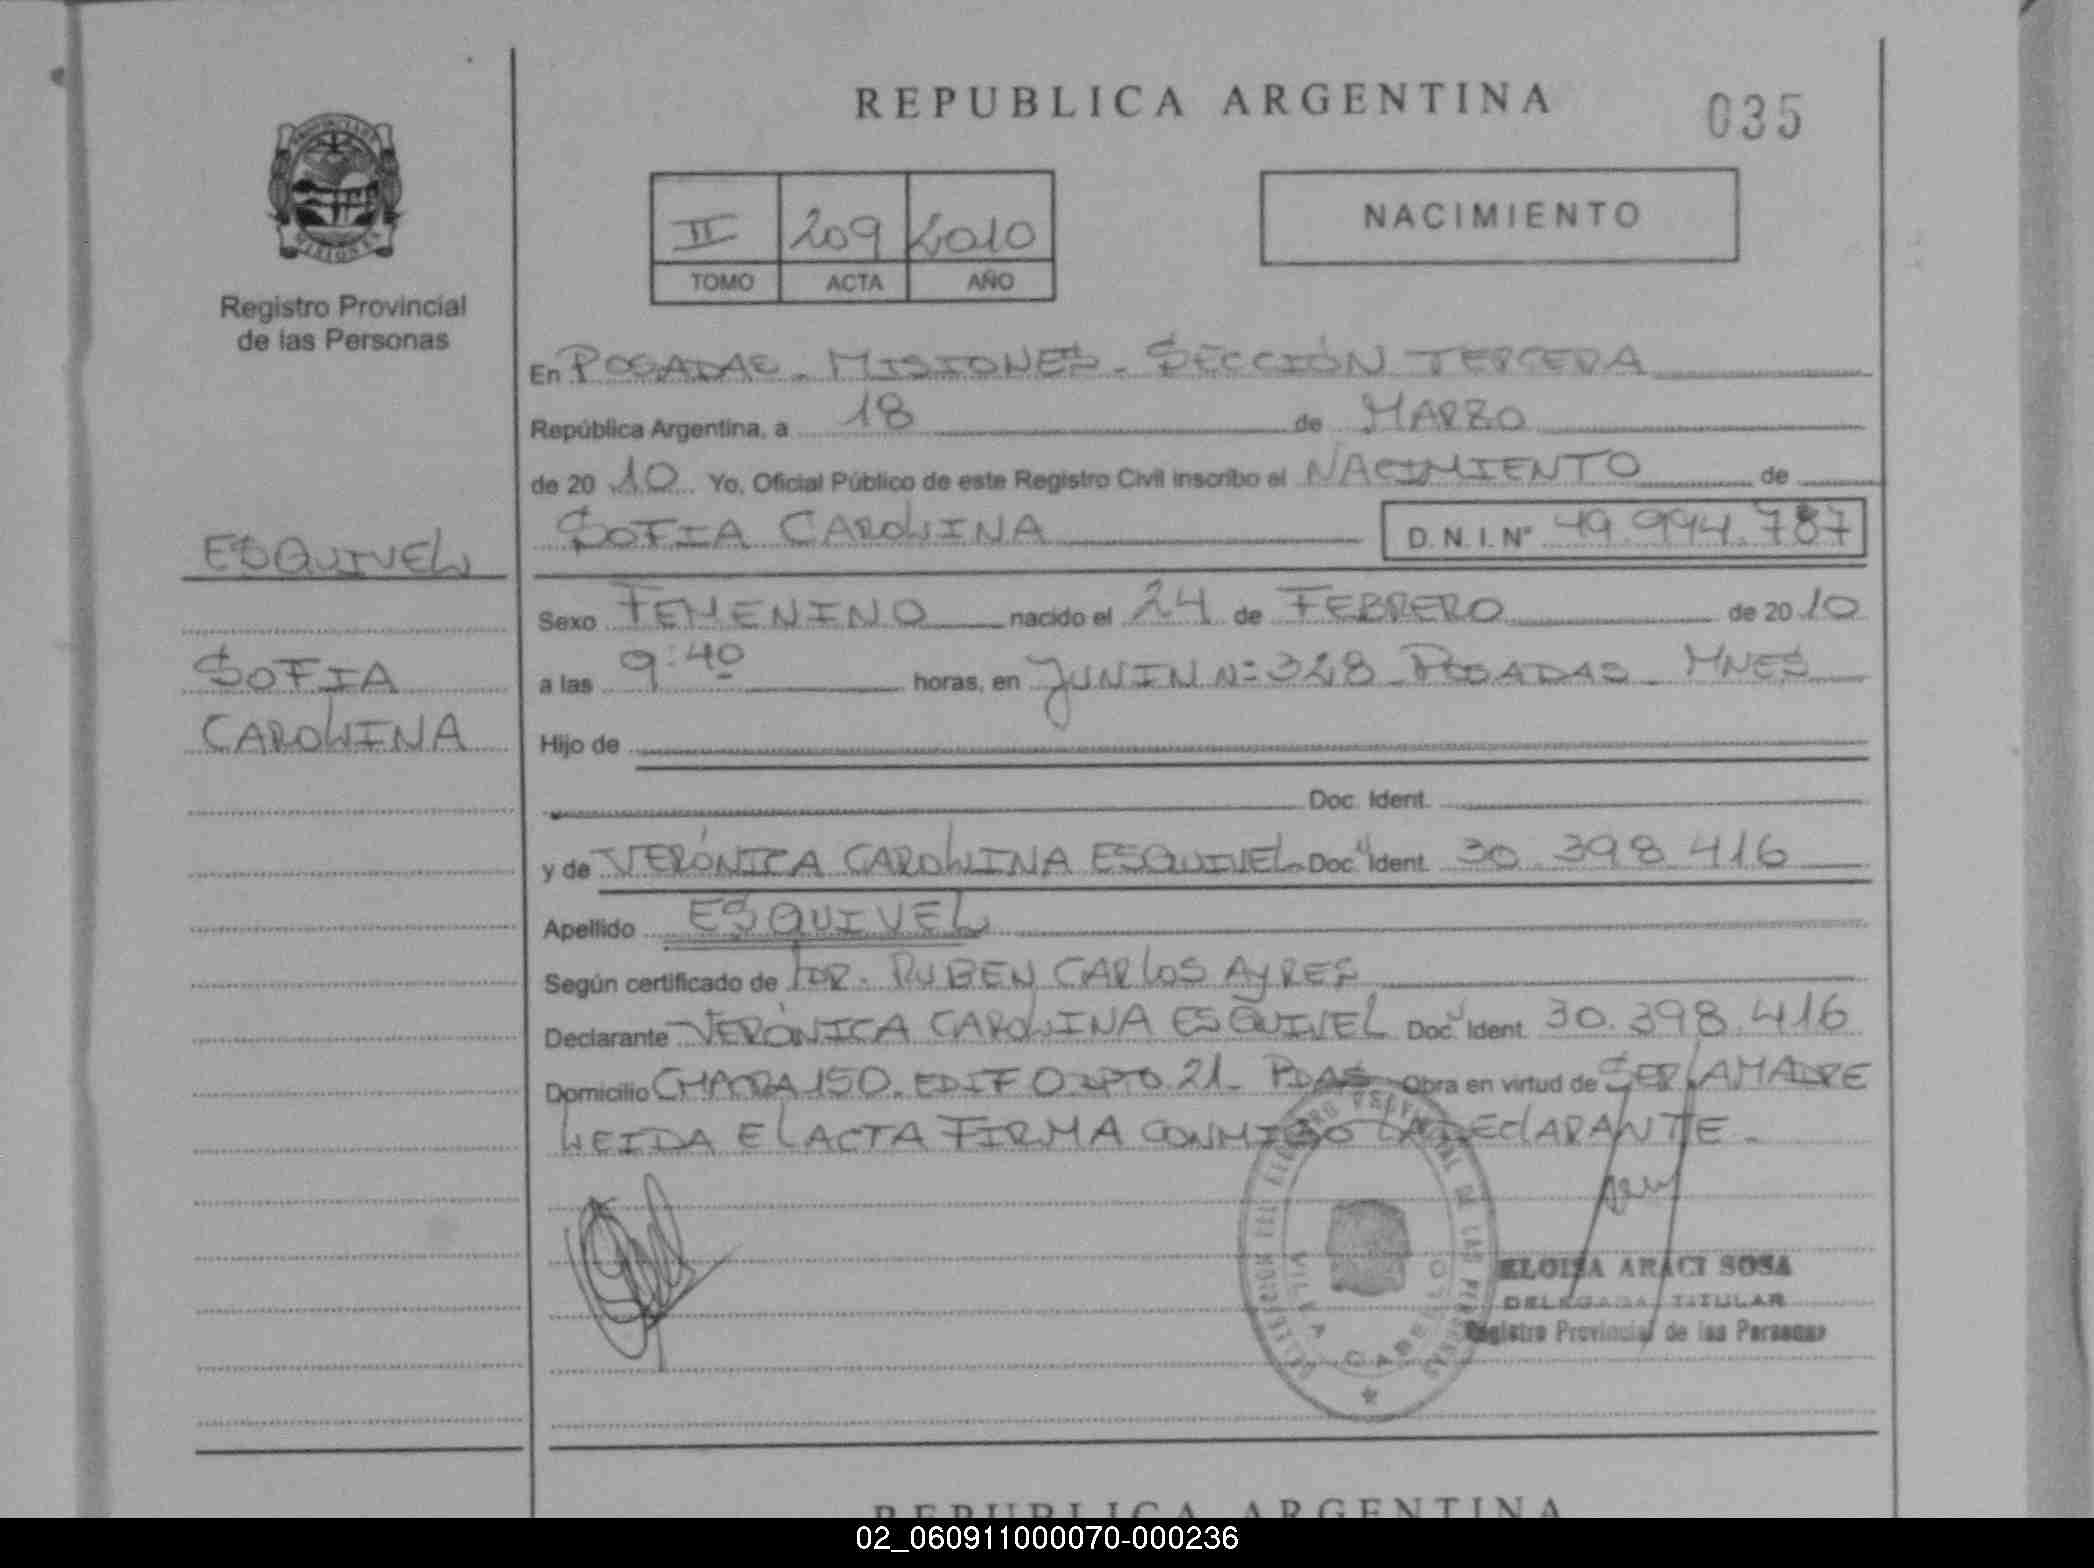 REPUBLICA ARGENTINA
035
II 209 2010
TOMO ACTA AÑO
NACIMIENTO
Registro Provincial
de las Personas
ESQUIVEL
SOFIA
CAROLINA
En POSADAS - MISIONES - SECCIÓN TERCERA
República Argentina, a 18 de MARZO
de 20 10 Yo, Oficial Público de este Registro Civil inscribo el NACIMIENTO de
SOFIA CAROLINA D.N.I. Nº 49.994.787
Sexo FEMENINO nacido el 24 de FEBRERO de 20 10
a las 9:40 horas, en JUNIN Nº 328 - POSADAS - MNES
Hijo de
Doc. Ident.
y de VERÓNICA CAROLINA ESQUIVEL Doc. Ident. 30.398.416
Apellido ESQUIVEL
Según certificado de DR. RUBEN CARLOS AYRES
Declarante VERÓNICA CAROLINA ESQUIVEL Doc. Ident. 30.398.416
Domicilio CHACRA 150. EDIF O DPTO 21 - PDAS Obra en virtud de SER LA MADRE
LEIDA EL ACTA FIRMA CONMIGO LA DECLARANTE -
VILLA CABELLO
ELOISA ARACI SOSA
DELEGADA TITULAR
Registro Provincial de las Personas
REPUBLICA ARGENTINA
02_060911000070-000236